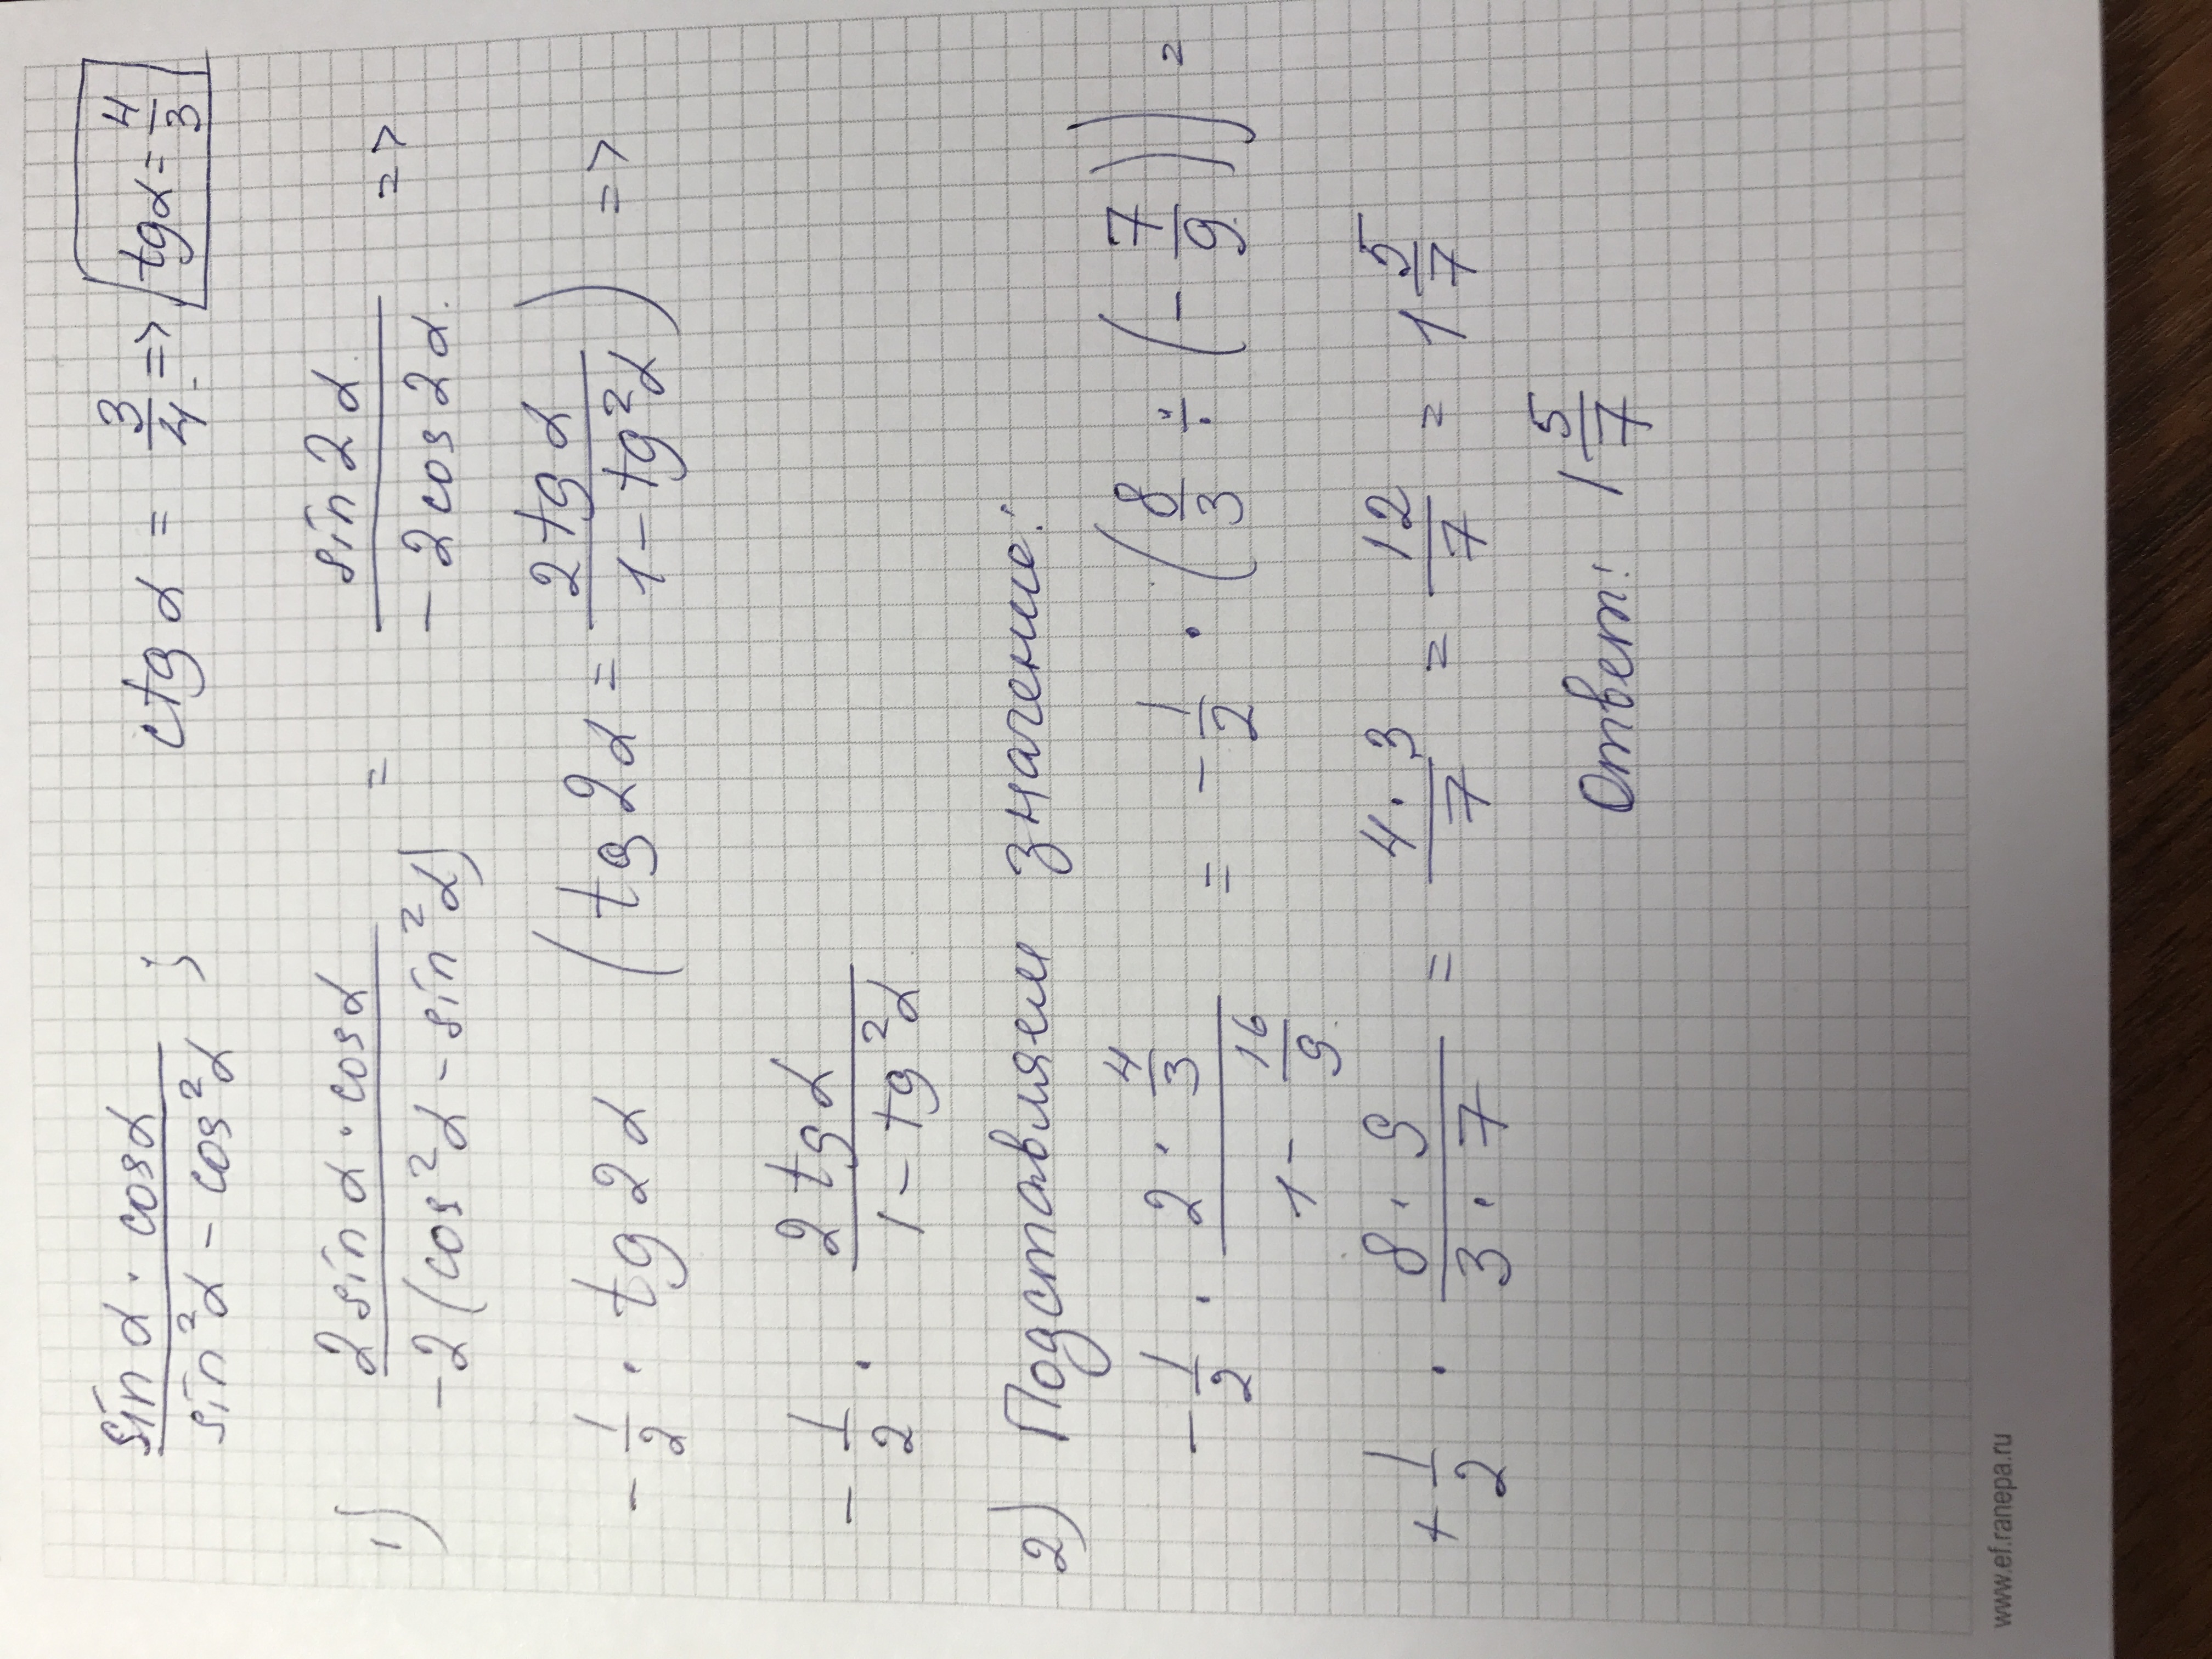 sinα · cosα / sin²α - cos²α ; ctg α = 3/4 => tgα = 4/3
1) 2 sin α · cosα / -2 (cos²α - sin²α) = sin 2α / -2 cos 2α =>
-1/2 · tg 2α (tg 2α = 2 tg α / 1 - tg²α) =>
-1/2 · 2 tg α / 1 - tg²α
2) Подставляем значение:
-1/2 · 2 · 4/3 / 1 - 16/9 = -1/2 · (8/3 ÷ (-7/9)) =
+1/2 · 8 · 9 / 3 · 7 = 4 · 3 / 7 = 12/7 = 1 5/7
Ответ: 1 5/7
www.ef.ranepa.ru